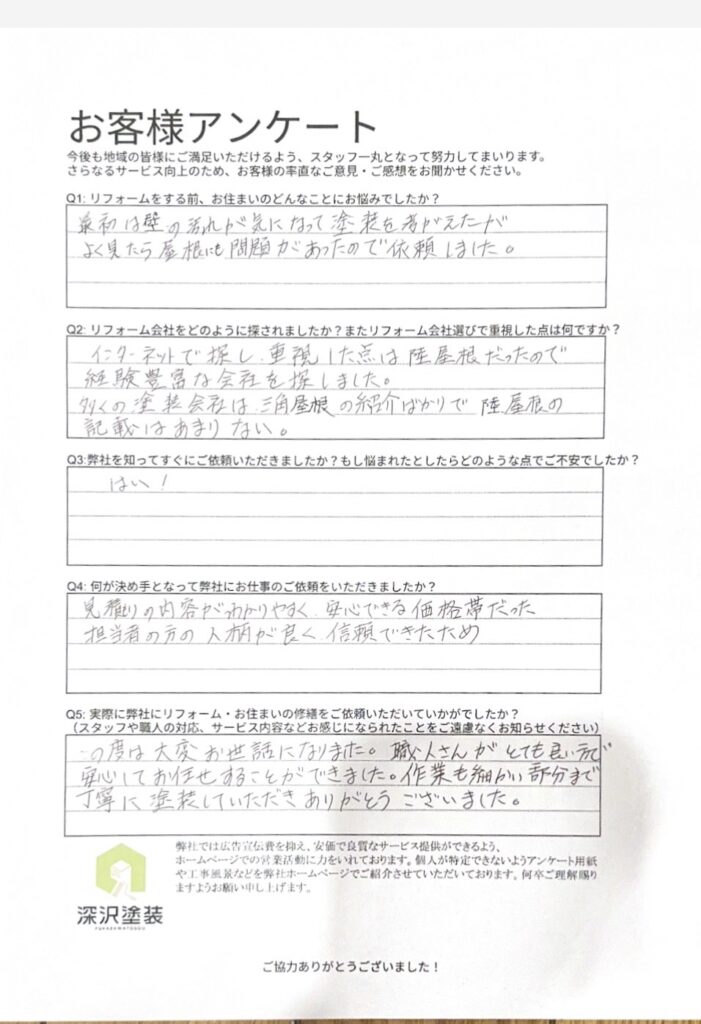 お客様アンケート
今後も地域の皆様にご満足いただけるよう、スタッフ一丸となって努力してまいります。
さらなるサービス向上のため、お客様の率直なご意見・ご感想をお聞かせください。
Q1: リフォームをする前、お住まいのどんなことにお悩みでしたか?
最初は壁の汚れが気になって塗装を考がえたが
よく見たら屋根にも問題があったので依頼しました。
Q2: リフォーム会社をどのように探されましたか?またリフォーム会社選びで重視した点は何ですか?
インターネットで探し、重視した点は陸屋根だったので
経験豊富な会社を探しました。
多くの塗装会社は、三角屋根の紹介ばかりで陸屋根の
記載はあまりない。
Q3:弊社を知ってすぐにご依頼いただきましたか?もし悩まれたとしたらどのような点でご不安でしたか?
はい!
Q4: 何が決め手となって弊社にお仕事のご依頼をいただきましたか?
見積りの内容がわかりやすく、安心できる価格帯だった
担当者の方の人柄が良く、信頼できたため
Q5: 実際に弊社にリフォーム・お住まいの修繕をご依頼いただいていかがでしたか?
(スタッフや職人の対応、サービス内容などお感じになられたことをご遠慮なくお知らせください)
この度は大変お世話になりました。職人さんがとても良い方で
安心してお任せすることができました。作業も細かい部分まで
丁寧に塗装していただきありがとうございました。
弊社では広告宣伝費を抑え、安価で良質なサービス提供ができるよう、
ホームページでの営業活動に力をいれております。個人が特定できないようアンケート用紙
や工事風景などを弊社ホームページでご紹介させていただいております。何卒ご理解賜り
ますようお願い申し上げます。
深沢塗装
FUKAZAWATOSOU
ご協力ありがとうございました!